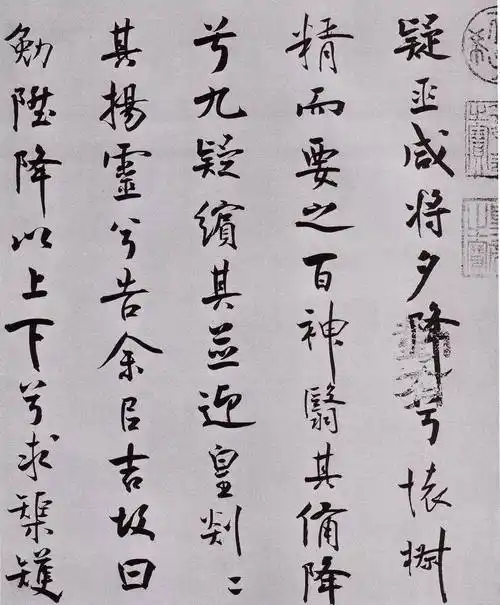 疑巫咸将夕降兮懐椒
糈而要之百神翳其俻降
兮九疑繽其並迎皇剡〻
其揚靈兮告余㠯吉故曰
勉陞降以上下兮求榘矱